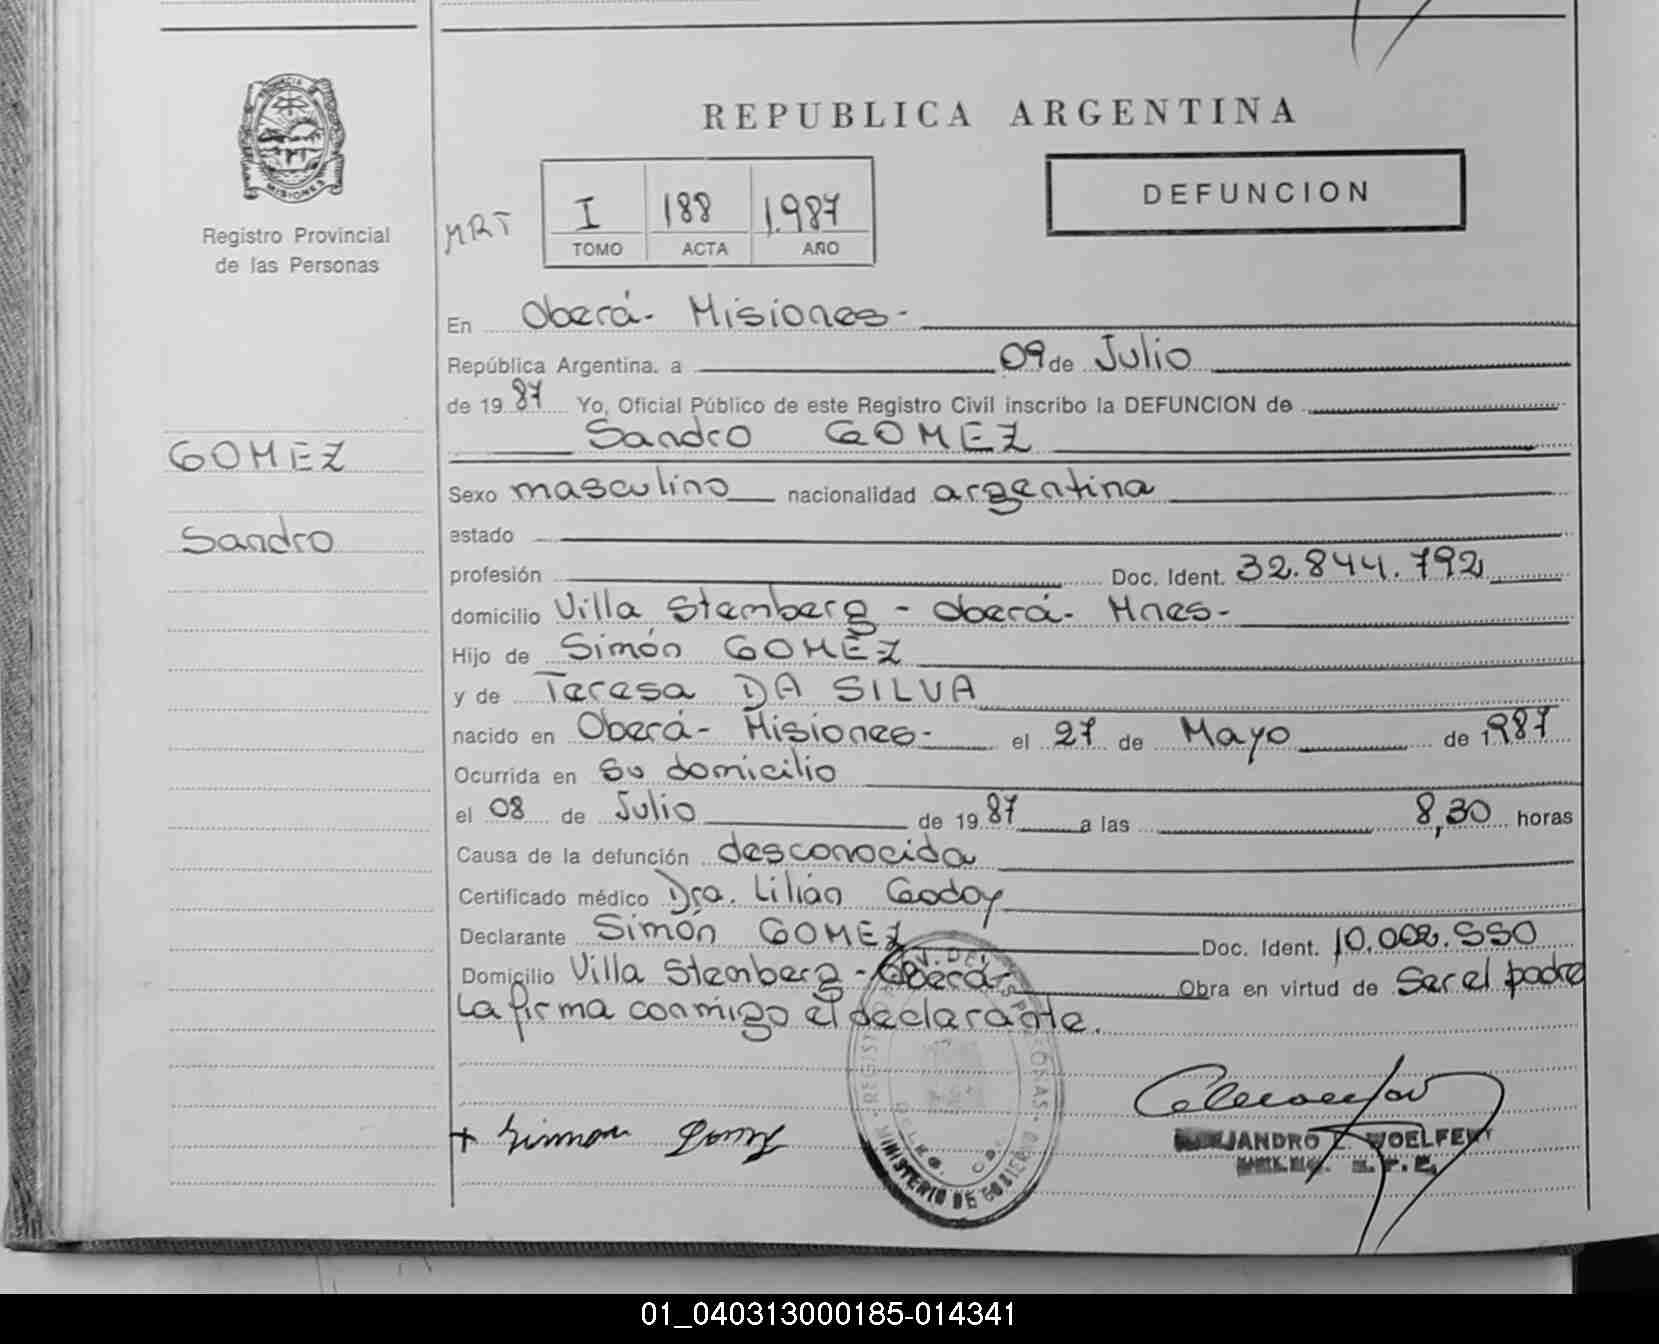 REPUBLICA ARGENTINA
PROVINCIA
MISIONES
Registro Provincial
de las Personas
MRT
I 188 1.987
TOMO ACTA AÑO
DEFUNCION
En Oberá- Misiones-
República Argentina. a 09 de Julio
de 19 87 Yo, Oficial Público de este Registro Civil inscribo la DEFUNCION de
Sandro GOMEZ
GOMEZ
Sandro
Sexo masculino nacionalidad argentina
estado
profesión Doc. Ident. 32.844.792
domicilio Villa Stemberg - Oberá- Mnes-
Hijo de Simón GOMEZ
y de Teresa DA SILVA
nacido en Oberá- Misiones- el 27 de Mayo de 1987
Ocurrida en su domicilio
el 08 de Julio de 19 87 a las 8,30 horas
Causa de la defunción desconocida
Certificado médico Dra. Lilián Godoy
Declarante Simón GOMEZ Doc. Ident. 10.002.550
Domicilio Villa Stemberg - Oberá- Obra en virtud de Ser el padre
La firma conmigo el declarante.
MINISTERIO DE GOBIERNO
JANDRO WOELFERT
01_040313000185-014341